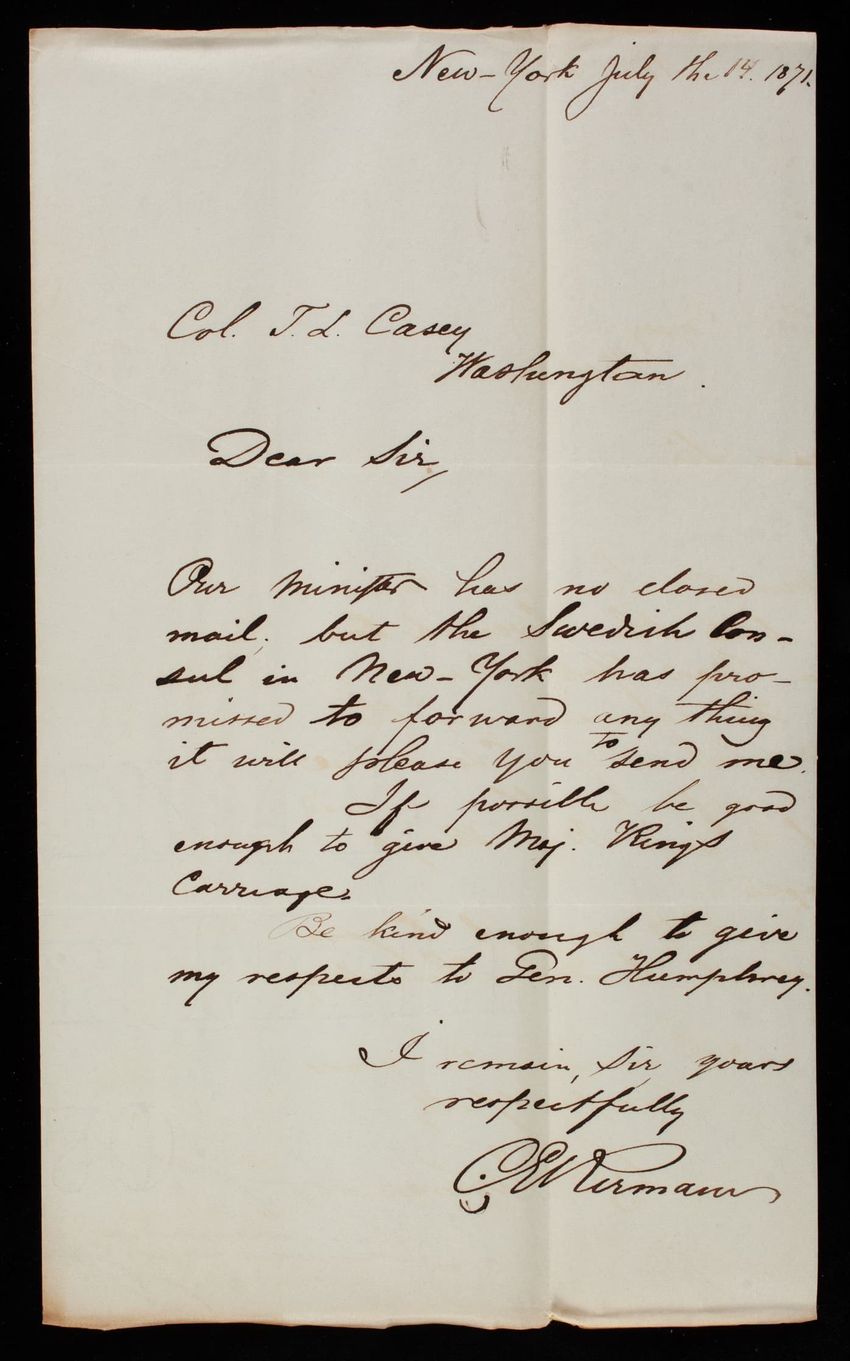 New-York July the 14. 1871.
Col. T. L. Casey
Washington.
Dear Sir,
Our minister has no closed
mail, but the Swedish Con-
sul in New-York has pro-
missed to forward any thing
it will please you to send me.
If possible be good
enough to give Maj. King's
Carriage.
Be kind enough to give
my respects to Gen. Humphrey.
I remain, Sir, yours
respectfully
C. E.